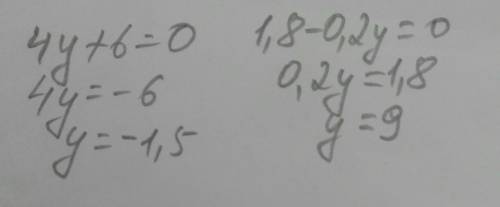 4y+6=0
4y=-6
y=-1,5
1,8-0,2y=0
0,2y=1,8
y=9